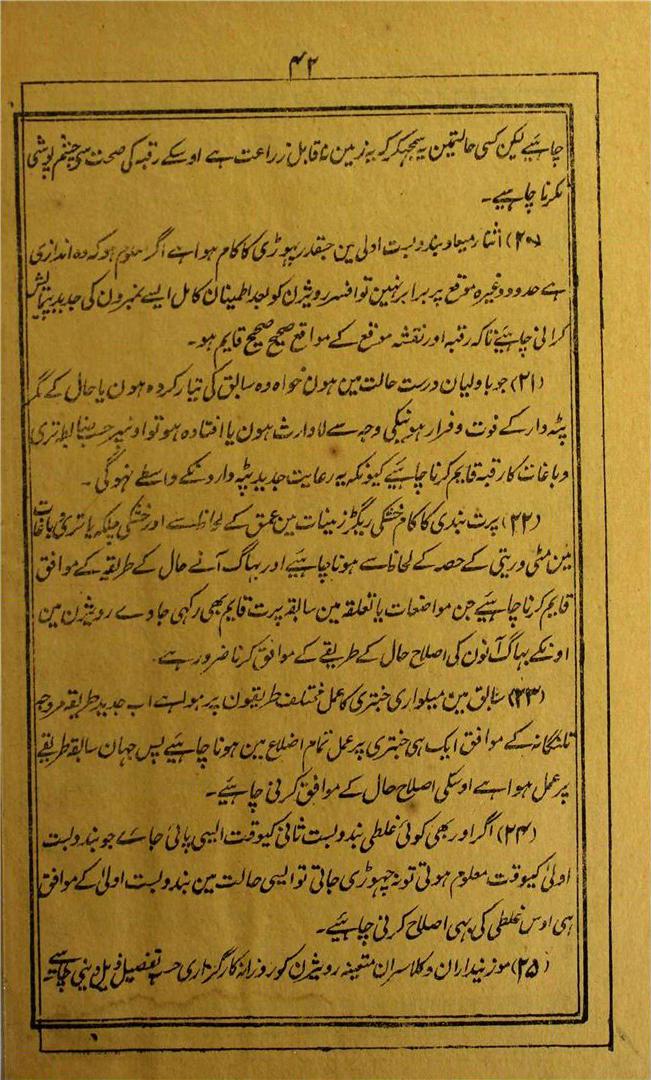 ۴۲
چاہیے لیکن کسی حالتمین یہ سمجہکر کہ یہ زمین ناقابل زراعت ہے اوسکے رقبہ کی صحت سی چشم پوشی
نکرنا چاہیے۔
(۲۰) اثنار میعاد بندوبست اولی مین جسقدر پہوڑی کا کام ہوا ہے اگر معلوم ہو کہ وہ اندازی
ہے حدود وغیرہ موقع پر برابر نہین تو افسر رویژرن کو بعد اطمینان کامل ایسے نمبرون کی جدید پیمایش
کرانی چاہیے تاکہ رقبہ اور نقشہ موقع کے مواقع صحیح صحیح قایم ہو۔
(۲۱) جو باولیان درست حالت مین ہون خواہ وہ سابق کی تیار کردہ ہون یا حال کے مگر
پٹہ دار کے فوت و فرار ہونیکی وجہ سے لاوارث ہون یا افتادہ ہو تو اونپر حسب ضابطہ تری
و باغات کا رقبہ قایم کرنا چاہیے کیونکہ یہ رعایت جدید پٹہ دارونکے واسطے نہوگی۔
(۲۲) پرت بندی کا کام خشکی ریگڑ زمینات مین عمق کے لحاظ سے اور خشکی چلکہ یا تری باغات
مین مٹی و ریتی کے حصہ کے لحاظ سے ہونا چاہیے اور بہاگ آنے حال کے طریقے کے موافق
قایم کرنا چاہیے جن مواضعات یا تعلقہ مین سابقہ پرت قایم بھی رکہی جاوے رویژرن مین
اونکے بہاگ آنون کی اصلاح حال کے طریقے کے موافق کرنا ضرور ہے۔
(۲۳) سابق مین میلواری جنتری کا عمل مختلف طریقون پر ہوا ہے اب جدید طریقہ مروجہ
تلنگانہ کے موافق ایک ہی جنتری پر عمل تمام اضلاع مین ہونا چاہیے پس جہان سابقہ طریقے
پر عمل ہوا ہے اوسکی اصلاح حال کے موافق کرنی چاہیے۔
(۲۴) اگر اور بھی کوئی غلطی بندوبست ثانی کیوقت ایسی پائی جاے جو بندوبست
اولیٰ کیوقت معلوم ہوتی تو نہ چہوڑی جاتی تو ایسی حالت مین بندوبست اولیٰ کے موافق
ہی اوس غلطی کی بہی اصلاح کرنی چاہیے۔
(۲۵) موزنیداران و کلاسران متعینہ رویژرن کو روزانہ کارگزاری حسب تفصیل ذیل دینی چاہیے